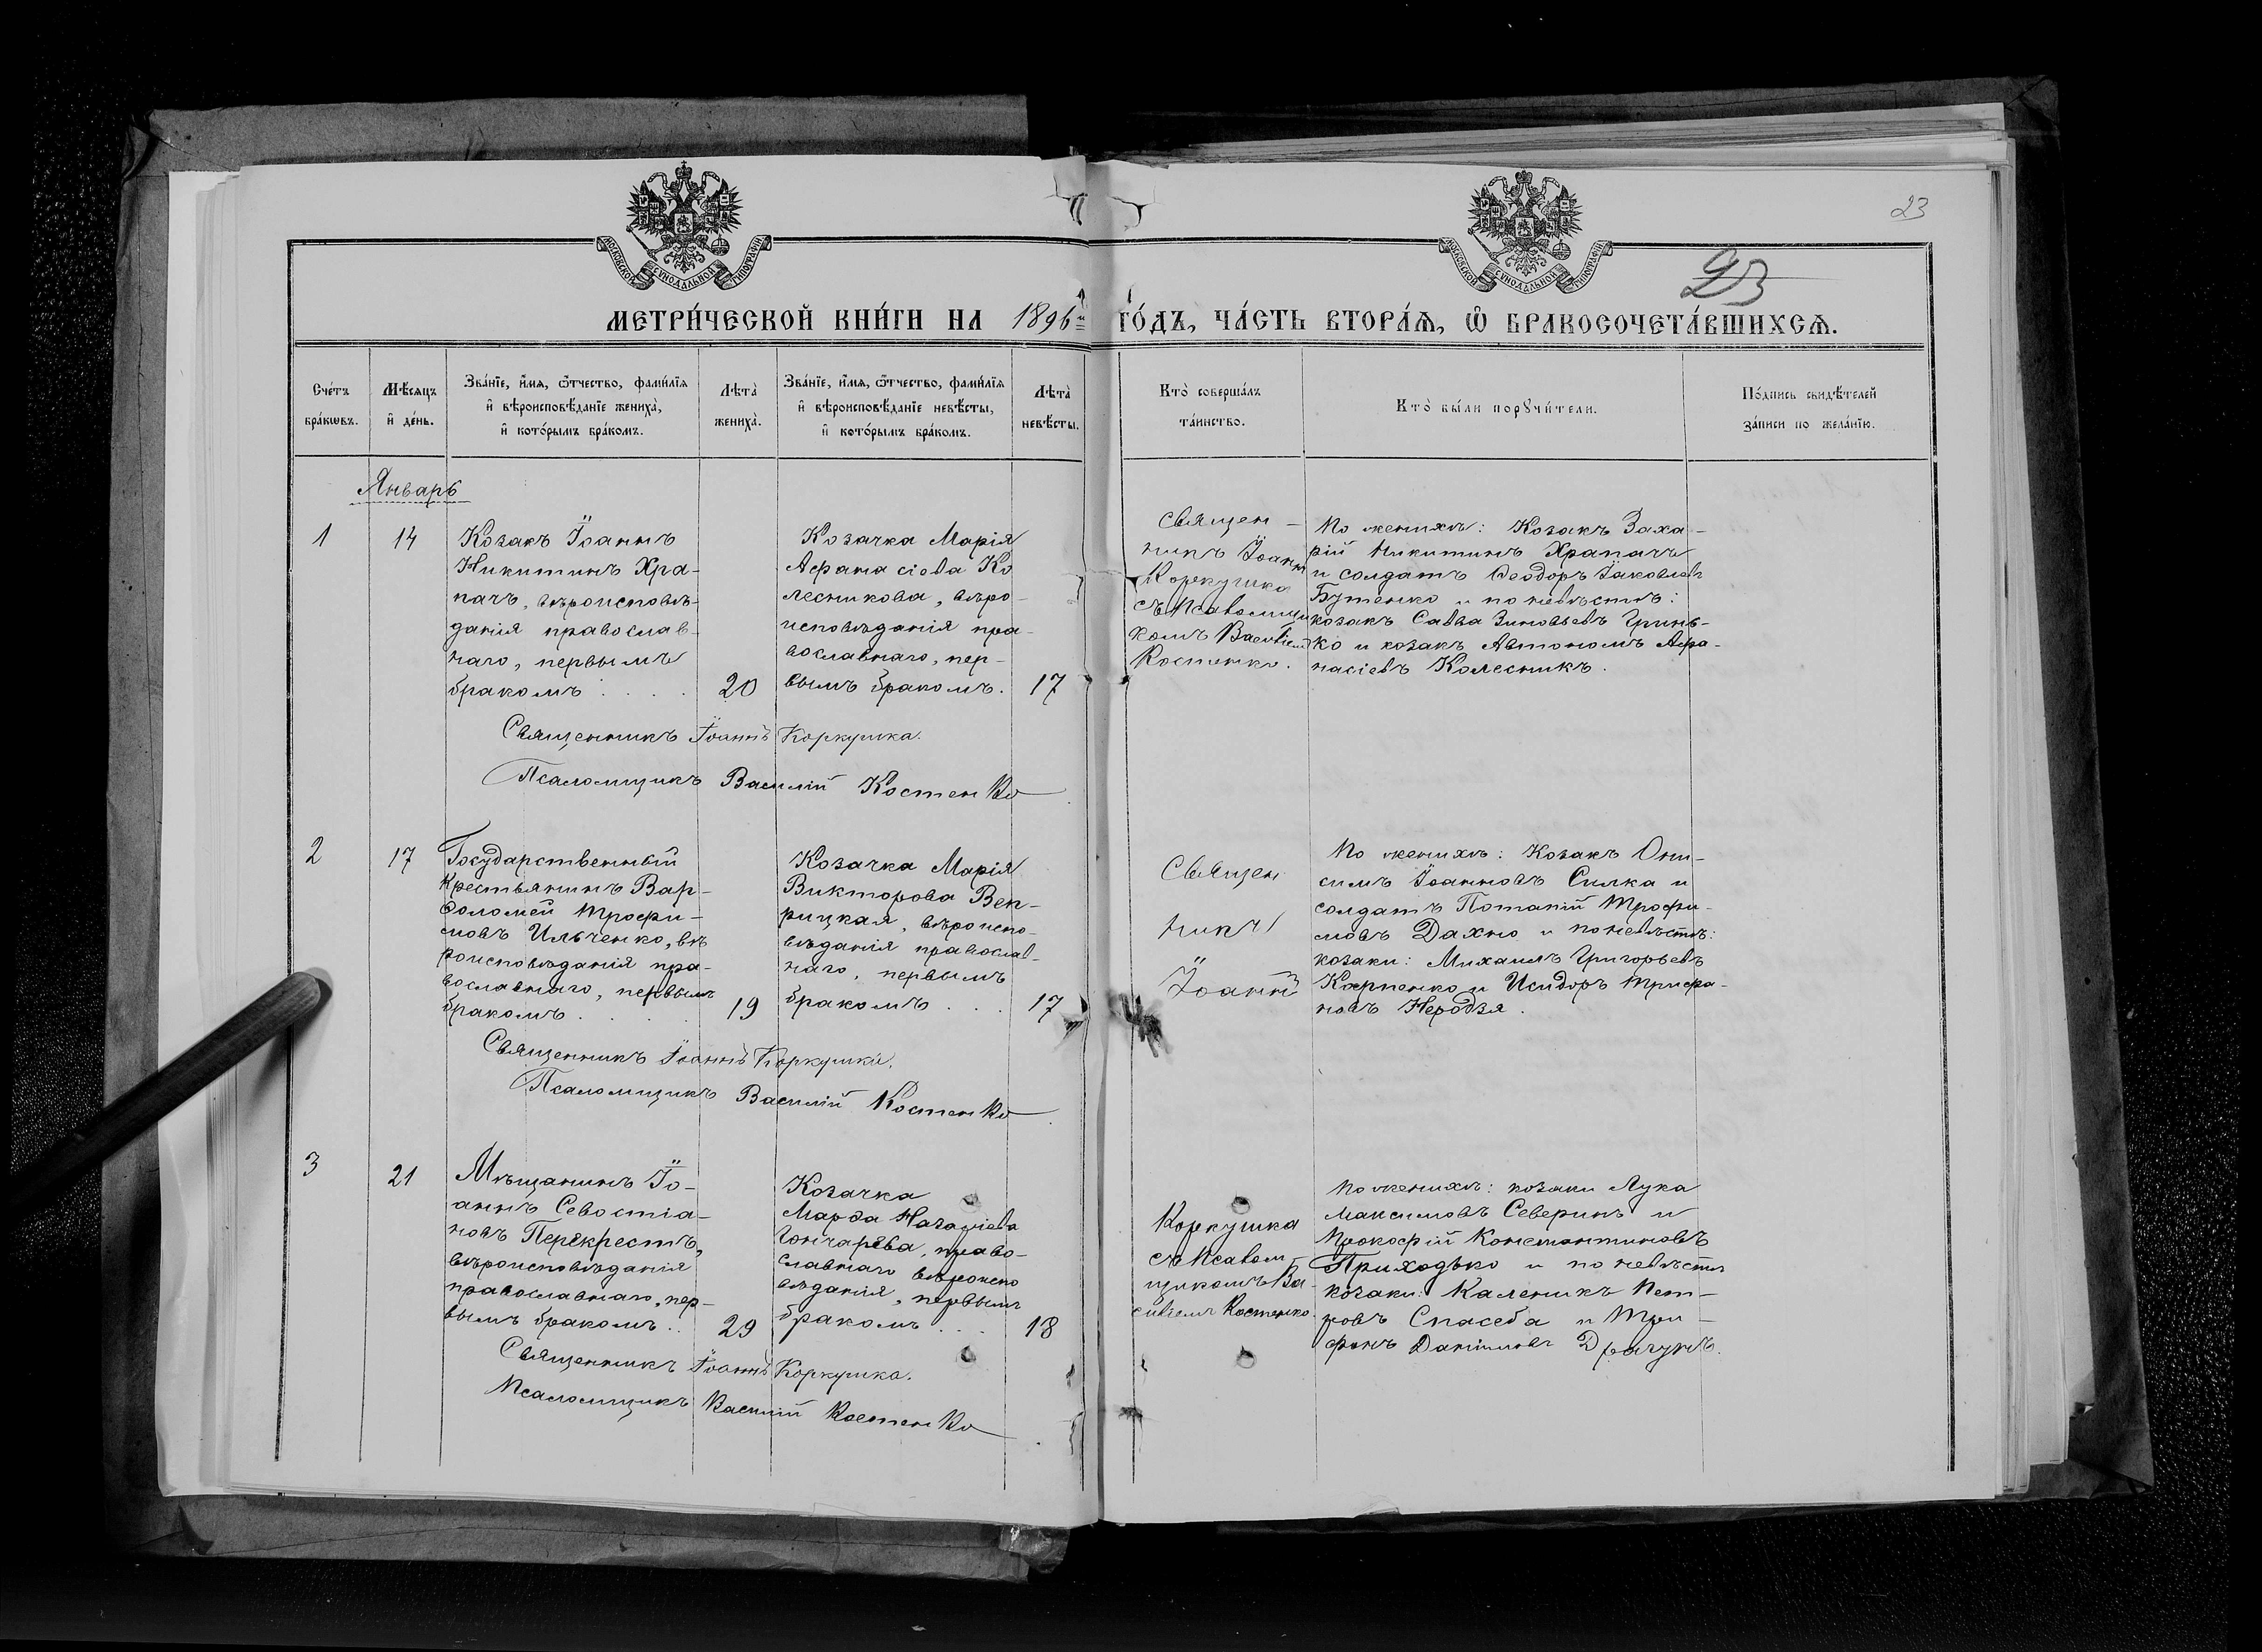 МОСКОВСКОЙ СѴНОДАЛЬНОЙ ТИПОГРАФІИ
МОСКОВСКОЙ СѴНОДАЛЬНОЙ ТИПОГРАФІИ
23
23
МЕТРИ́ЧЕСКОЙ КНИ́ГИ НА 1896й ГО́ДЪ, ЧА́СТЬ ВТОРА́Ѧ, Ѡ҆ БРАКОСОЧЕТА́ВШИХСѦ.
Сче́тъ
бра́кѡвъ.
Мѣ́сѧцъ
и҆ де́нь.
Зва́нїе, и҆́мѧ, ѻ҆́тчество, фами́лїѧ
и҆ вѣроисповѣ́данїе жениха̀,
и҆ кото́рымъ бра́комъ.
Лѣта̀
жениха̀.
Зва́нїе, и҆́мѧ, ѻ҆́тчество, фами́лїѧ
и҆ вѣроисповѣ́данїе невѣ́сты,
и҆ кото́рымъ бра́комъ.
Лѣта̀
невѣ́сты.
Кто̀ соверша́лъ
та́инство.
Кто̀ бы́ли порꙋчи́тели.
По́дпись свидѣ́телей
за́писи по жела́нїю.
Январь
1
14
Козакъ Іоаннъ
Никитинъ Хра-
пачъ, вѣроисповѣ-
данія православ-
наго, первымъ
бракомъ . . . .
20
Козачка Марія
Афанасіева Ко
лесникова, вѣро-
исповѣданія пра-
вославнаго, пер-
вымъ бракомъ.
17
Священ-
никъ Іоаннъ
Коркушка
съ Псаломщи
комъ Василіем
Костенко.
По женихѣ: Козакъ Заха-
рій Никитинъ Храпачъ
и солдатъ Ѳеодоръ Іаковлевъ
Бутенко и по невѣстѣ:
козакъ Савва Зиновьевъ Гринь-
ко и козакъ Автономъ Афа-
насіевъ Колесникъ.
Священникъ Іоаннъ Коркушка.
Псаломщикъ Василій Костенко
2
17
Государственный
Крестьянинъ Вар-
ѳоломей Трофи-
мовъ Ильченко, вѣ
роисповѣданія пра-
вославнаго, первымъ
бракомъ . . .
19
Козачка Марія
Викторова Веп-
рицкая, вѣроиспо-
вѣданія православ-
наго, первымъ
бракомъ . . .
17
Священ
никъ
Іоаннъ
По женихѣ: Козакъ Они-
симъ Іоанновъ Силка и
солдатъ Потапій Трофи-
мовъ Дахно и по невѣстѣ:
козаки: Михаилъ Григорьевъ
Карпенко и Исидоръ Трифо-
новъ Неродзя.
Священникъ Іоаннъ Коркушка.
Псаломщикъ Василій Костенко
3
21
Мѣщанинъ Іо-
аннъ Севостіа-
новъ Перекрестъ,
вѣроисповѣданія
православнаго, пер-
вымъ бракомъ..
29
Козачка
Марѳа Назаріева
Гончарева, право-
славнаго вѣроиспо
вѣданія, первымъ
бракомъ . . .
18
Коркушка
съ Псалом
щикомъ Ва-
силіемъ Костенко.
По женихѣ: козаки Лука
Максимовъ Северинъ и
Прокофій Константиновъ
Приходько и по невѣстѣ
козаки: Каленикъ Пет-
ровъ Спасеба и Три-
фонъ Даніиловъ Драгунъ.
Священникъ Іоаннъ Коркушка.
Псаломщикъ Василій Костенко